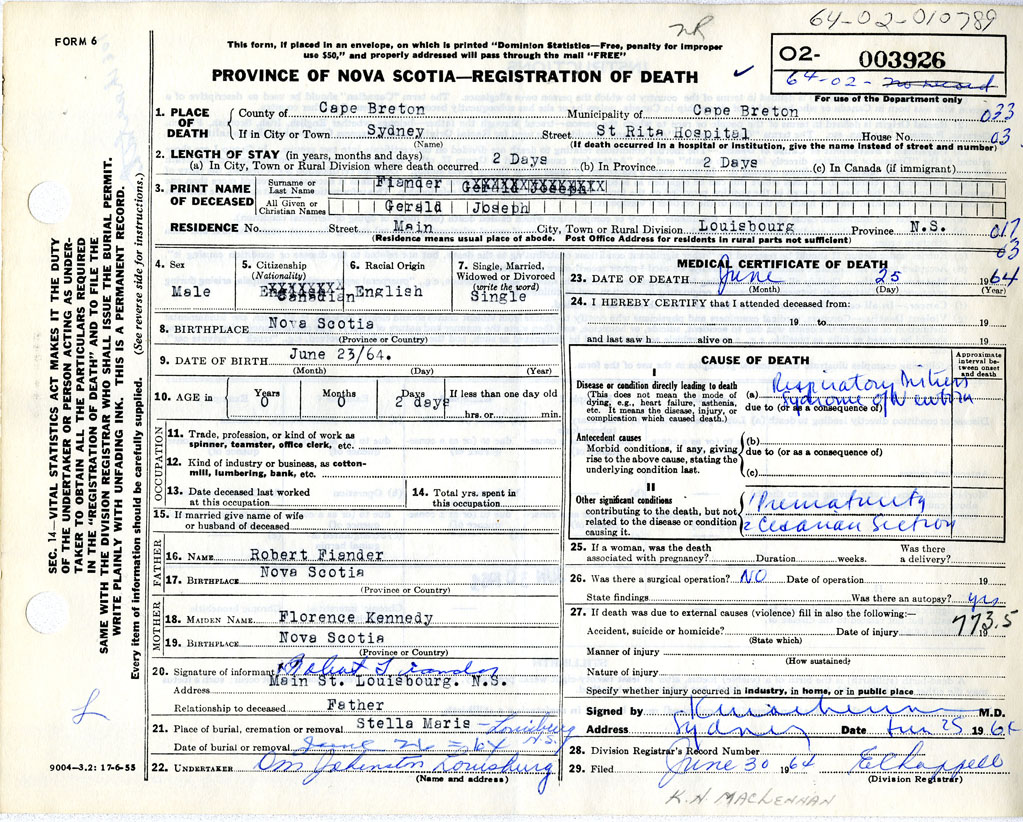 64-02-010789
NR
FORM 6
This form, if placed in an envelope, on which is printed "Dominion Statistics—Free, penalty for improper
use $50," and properly addressed will pass through the mail "FREE"
O2- 003926
64-02- No record
PROVINCE OF NOVA SCOTIA—REGISTRATION OF DEATH ✓
For use of the Department only
1. PLACE OF DEATH
County of Cape Breton Municipality of Cape Breton 033
If in City or Town Sydney Street St Rita Hospital House No. 03
(Name) (If death occurred in a hospital or institution, give the name instead of street and number)
2. LENGTH OF STAY (in years, months and days)
(a) In City, Town or Rural Division where death occurred 2 Days (b) In Province 2 Days (c) In Canada (if immigrant)
3. PRINT NAME OF DECEASED
Surname or Last Name Fiander Gerald Joseph
All Given or Christian Names Gerald Joseph
RESIDENCE No. Street Main City, Town or Rural Division Louisbourg Province N.S. 017
(Residence means usual place of abode. Post Office Address for residents in rural parts not sufficient) 03
4. Sex
Male
5. Citizenship
(Nationality)
Canadian
6. Racial Origin
English
7. Single, Married,
Widowed or Divorced
(write the word)
Single
8. BIRTHPLACE Nova Scotia
(Province or Country)
9. DATE OF BIRTH June 23/64.
(Month) (Day) (Year)
10. AGE in
Years Months Days If less than one day old
0 0 2 days hrs. or min.
OCCUPATION
11. Trade, profession, or kind of work as
spinner, teamster, office clerk, etc.
12. Kind of industry or business, as cotton-
mill, lumbering, bank, etc.
13. Date deceased last worked
at this occupation
14. Total yrs. spent in
this occupation
15. If married give name of wife
or husband of deceased
FATHER
16. NAME Robert Fiander
17. BIRTHPLACE Nova Scotia
(Province or Country)
MOTHER
18. MAIDEN NAME Florence Kennedy
19. BIRTHPLACE Nova Scotia
(Province or Country)
20. Signature of informant Robert Fiander
Address Main St. Louisbourg. N.S.
Relationship to deceased Father
21. Place of burial, cremation or removal Stella Maris - Louisburg N.S.
Date of burial or removal June 26 - 64
22. UNDERTAKER Johnston Louisburg
(Name and address)
MEDICAL CERTIFICATE OF DEATH
23. DATE OF DEATH June 25 1964
(Month) (Day) (Year)
24. I HEREBY CERTIFY that I attended deceased from:
19 to 19
and last saw h alive on 19
CAUSE OF DEATH
Approximate
interval be-
tween onset
and death
I
Disease or condition directly leading to death
(This does not mean the mode of
dying, e.g., heart failure, asthenia,
etc. It means the disease, injury, or
complication which caused death.)
(a) Respiratory Distress
Syndrome of Newborn
due to (or as a consequence of)
Antecedent causes
Morbid conditions, if any, giving
rise to the above cause, stating the
underlying condition last.
(b)
due to (or as a consequence of)
(c)
II
Other significant conditions
contributing to the death, but not
related to the disease or condition
causing it.
1 Prematurity
2 Cesarian Section
25. If a woman, was the death Was there
associated with pregnancy? Duration weeks. a delivery?
26. Was there a surgical operation? NO Date of operation 19
State findings Was there an autopsy? yes
27. If death was due to external causes (violence) fill in also the following:—
773.5
Accident, suicide or homicide? Date of injury 19
(State which)
Manner of injury
(How sustained)
Nature of injury
Specify whether injury occurred in industry, in home, or in public place
Signed by M.D.
Address Sydney Date Jun 25 1964
28. Division Registrar's Record Number
29. Filed June 30 1964 E Chappell
(Division Registrar)
K.N MACLENNAN
SEC. 14—VITAL STATISTICS ACT MAKES IT THE DUTY
OF THE UNDERTAKER OR PERSON ACTING AS UNDER-
TAKER TO OBTAIN ALL THE PARTICULARS REQUIRED
IN THE "REGISTRATION OF DEATH" AND TO FILE THE
SAME WITH THE DIVISION REGISTRAR WHO SHALL ISSUE THE BURIAL PERMIT.
WRITE PLAINLY WITH UNFADING INK. THIS IS A PERMANENT RECORD.
Every item of information should be carefully supplied. (See reverse side for instructions.)
L
9004—3.2: 17-6-55